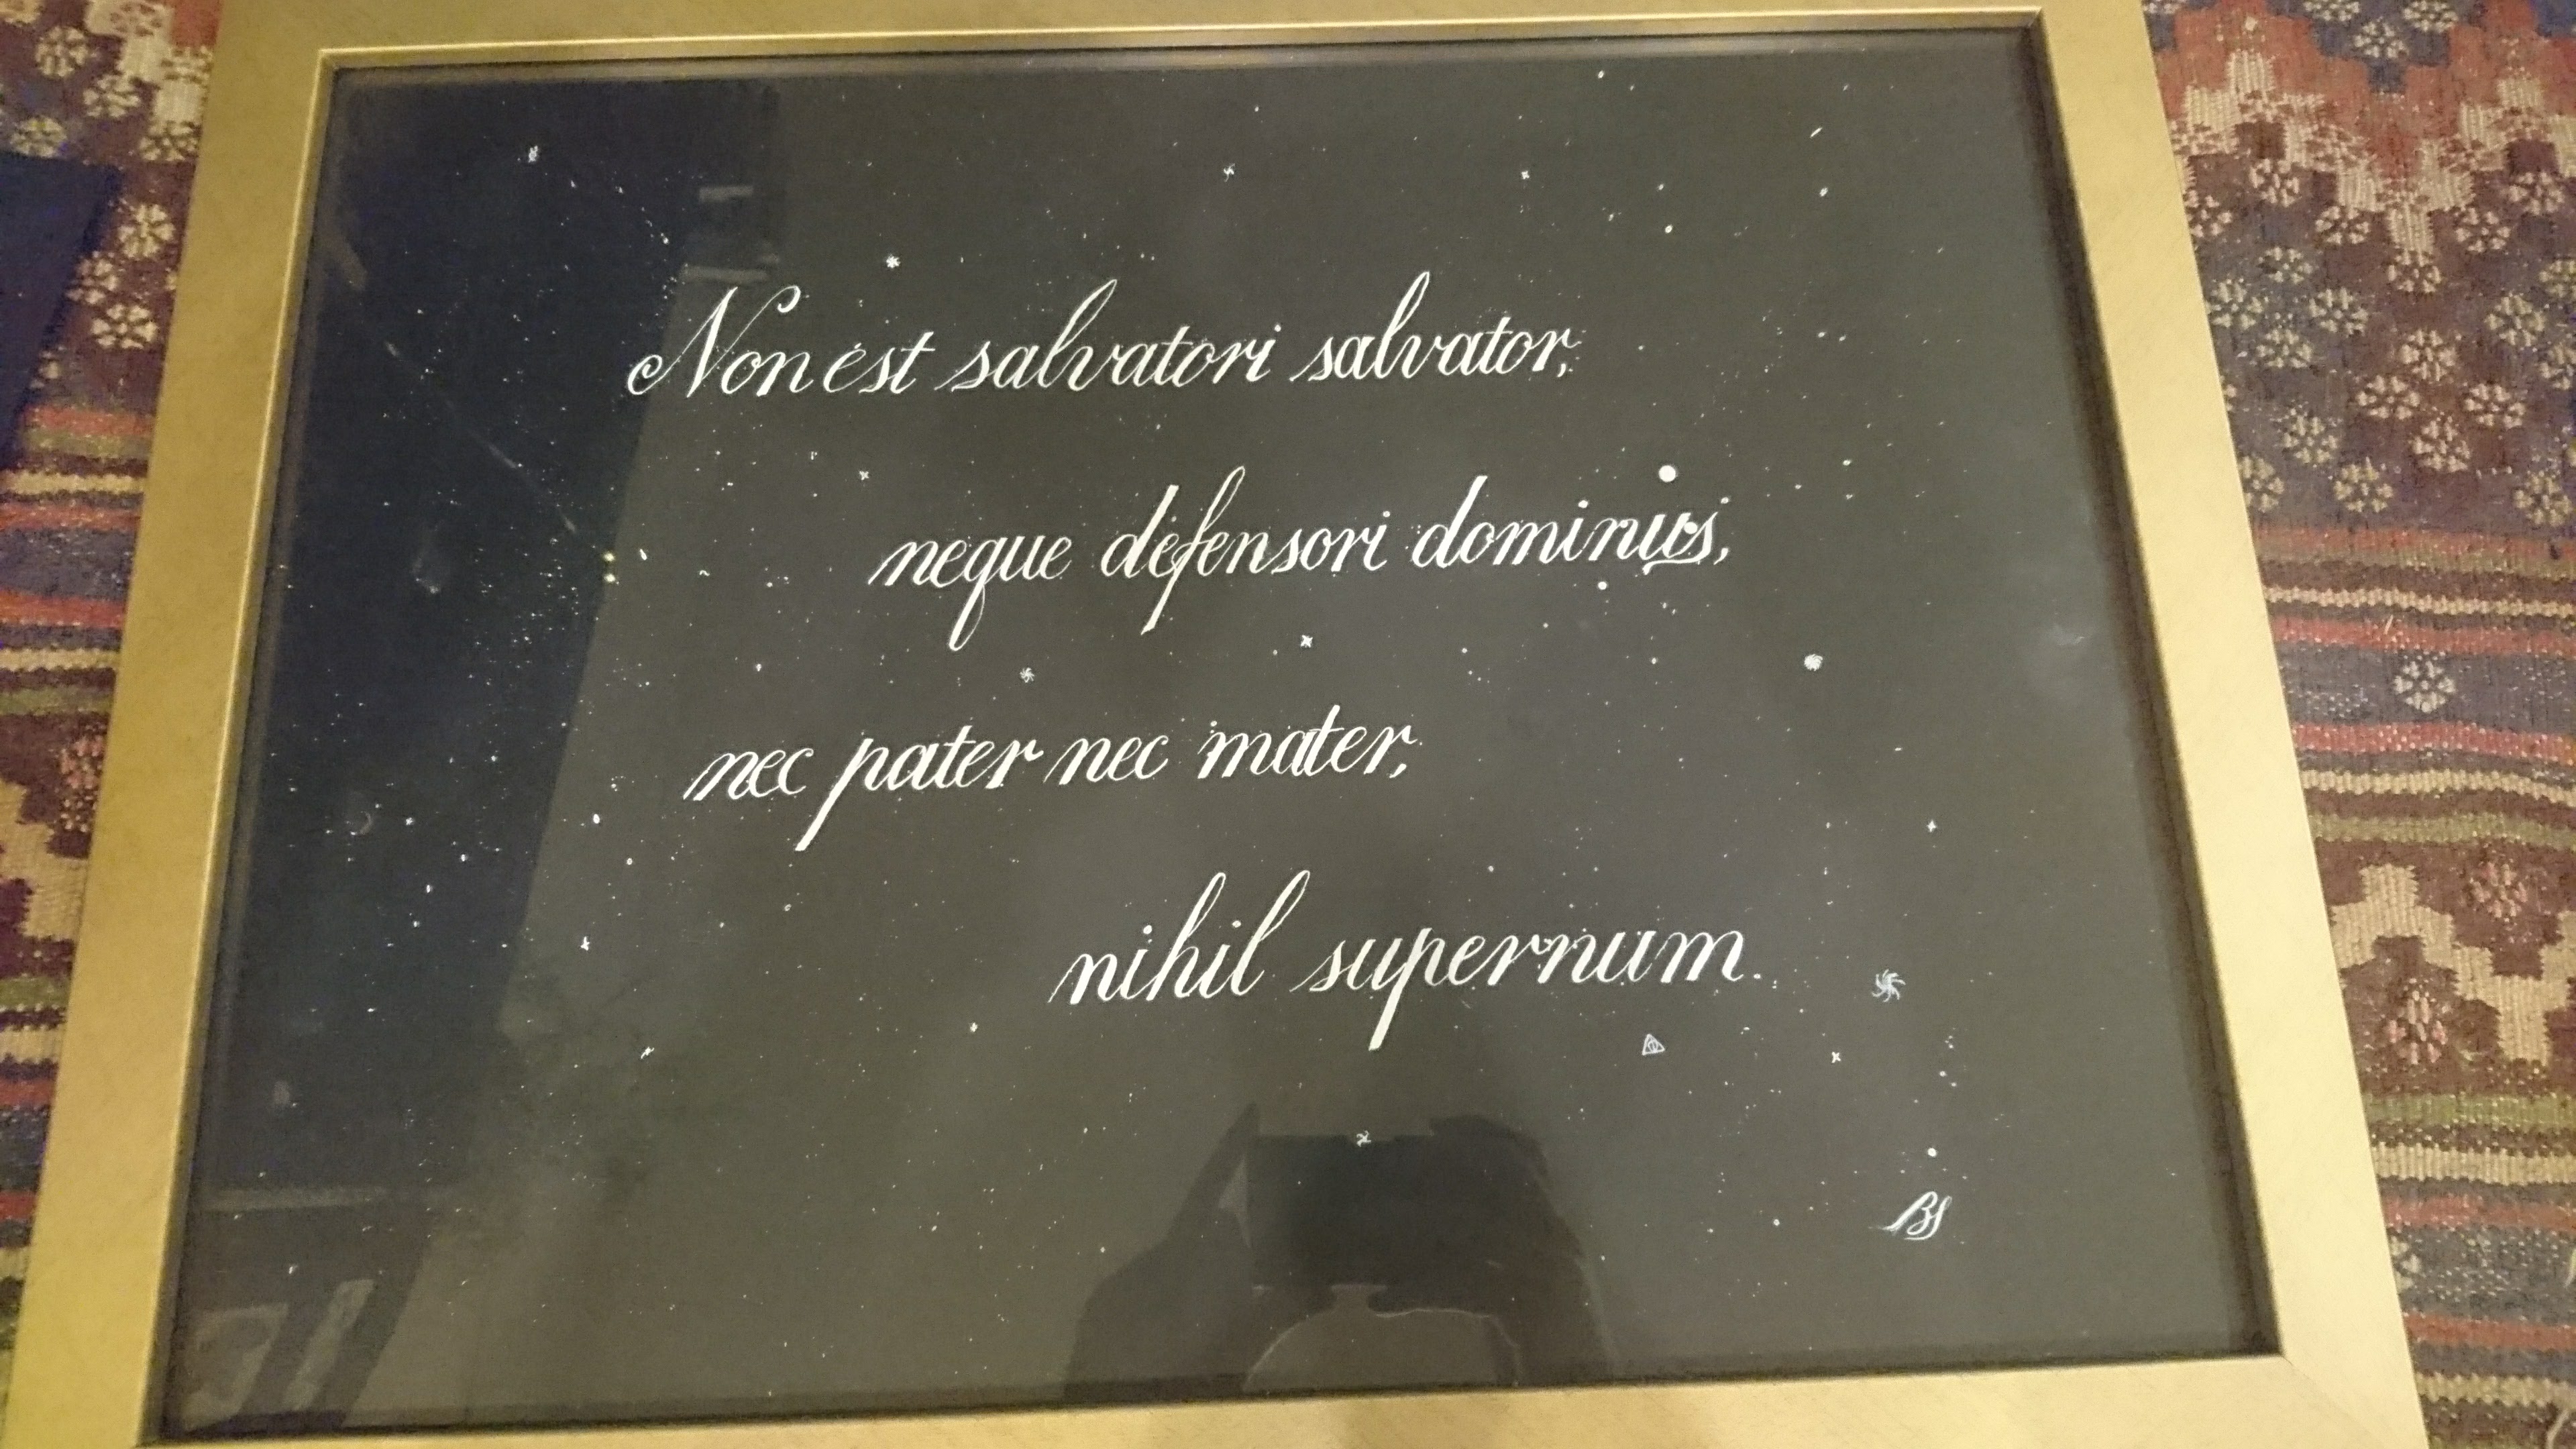 Non est salvatori salvator,
neque defensori dominus,
nec pater nec mater,
nihil supernum.
BS